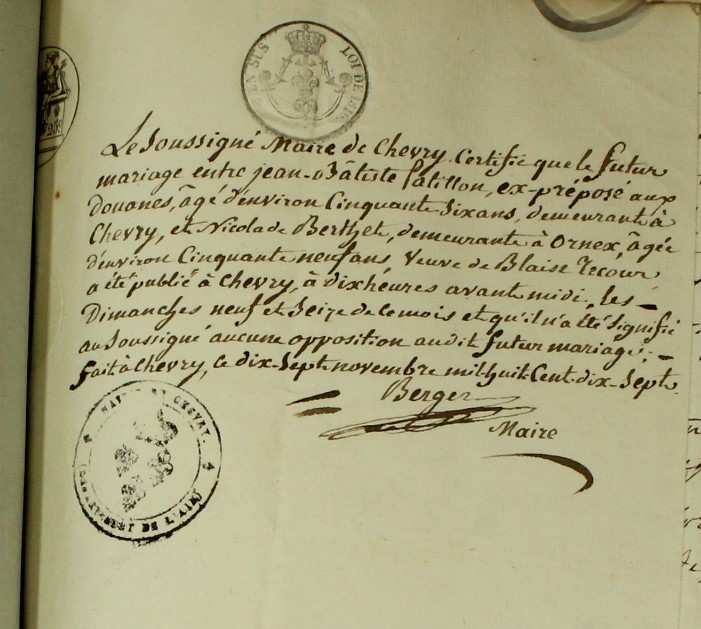 EN SUS LOI DE
Le Soussigné Maire de Chevry Certifié que le futur
mariage entre jean-Bâtiste fatillon, ex-préposé aux
Douanes, âgé d'énviron Cinquante Six ans, demeurant à
Chevry, et Nicolade Berthet, demeurante à Ornex, âgée
d'énviron Cinquante neuf ans Veuve de Blaise
a été publié à Chevry, à dix héures avant midi, les
Dimanches neuf et Seize de Ce mois et qu'il n'a été Signifié
au Soussigné aucune opposition audit futur mariage.
fait à Chevry, le dix-Sept novembre mil huit Cent dix-Sept.
Berger
Maire
MAIRIE DE CHEVRY
(DEPARTEMENT DE L'AIN)